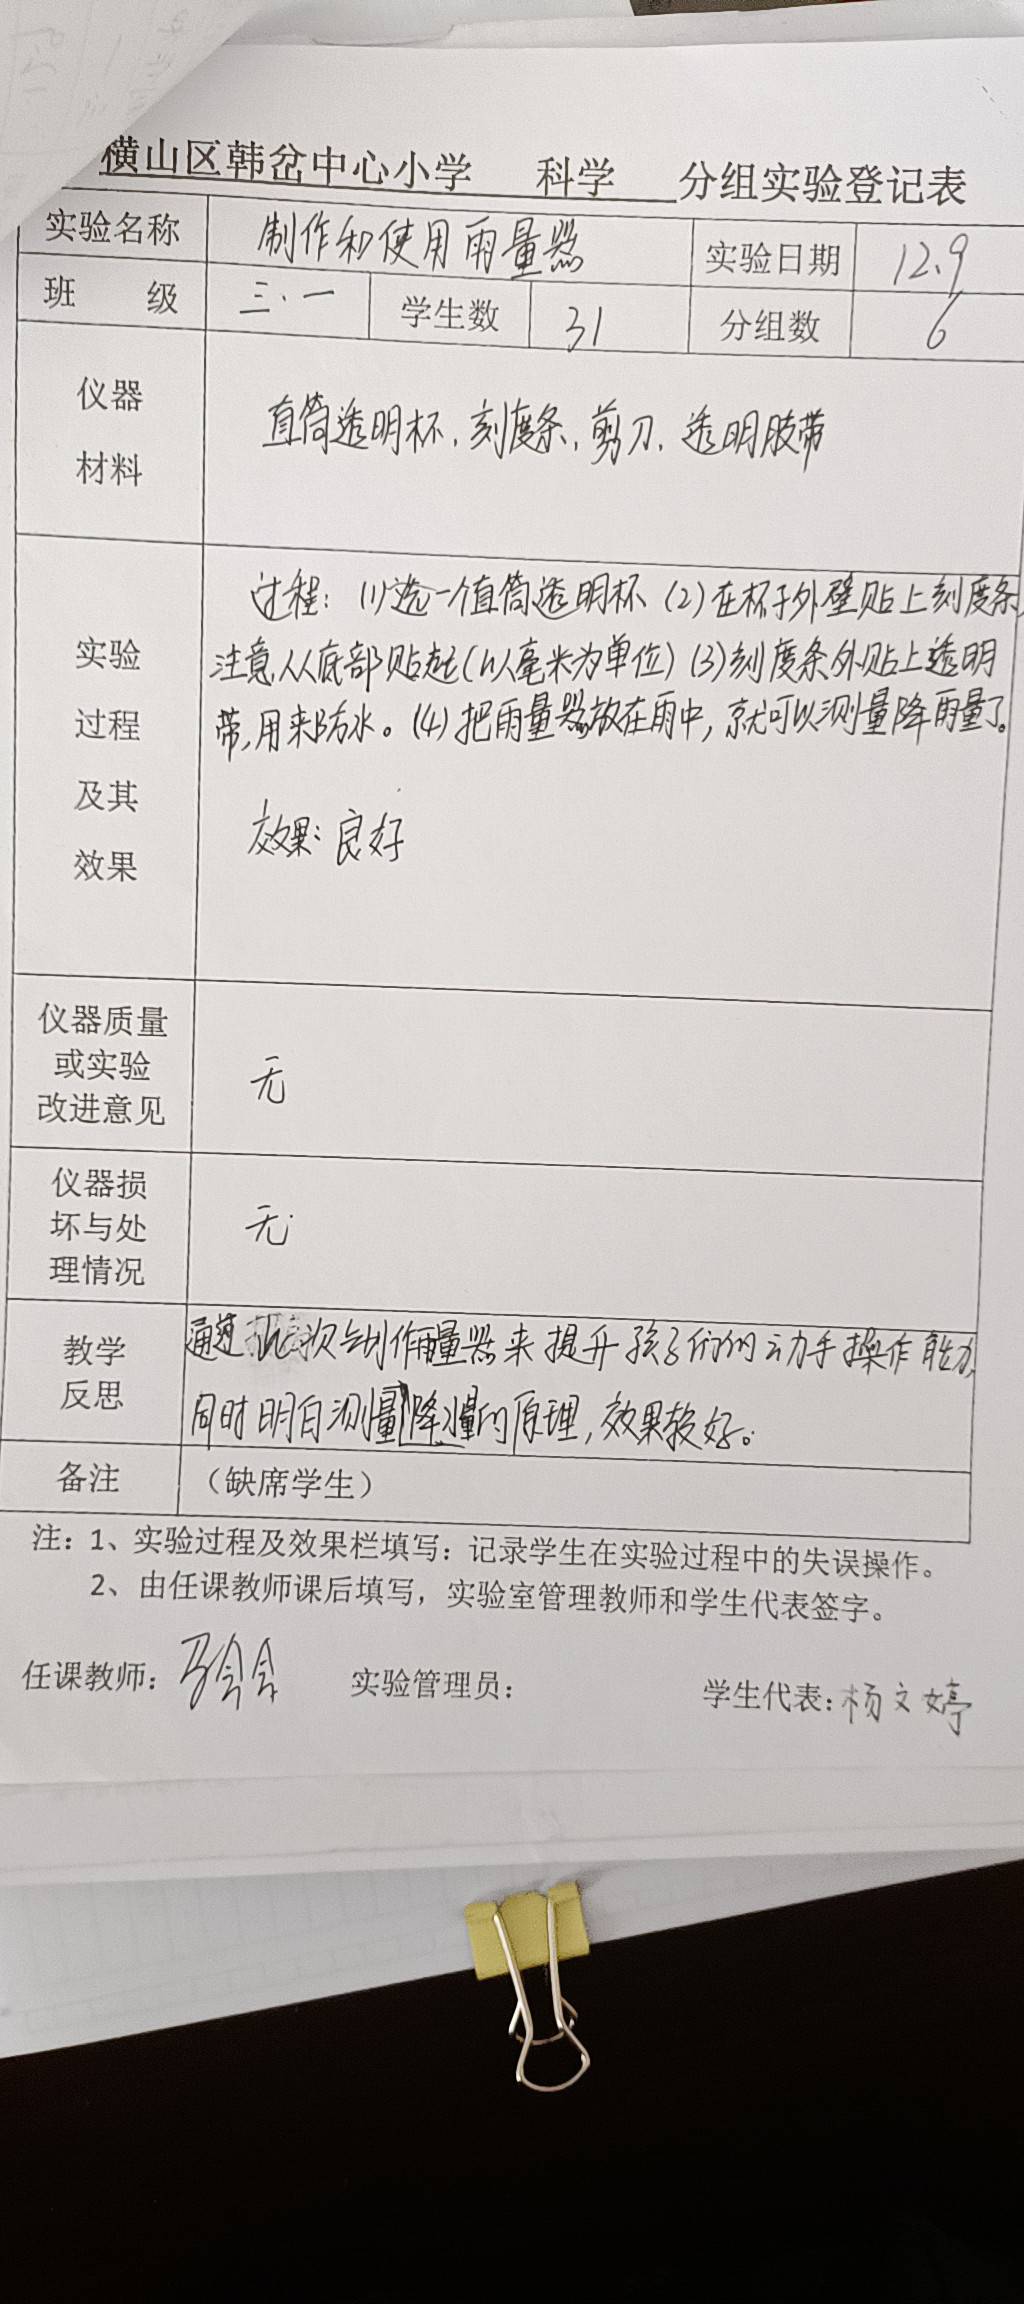 横山区韩岔中心小学 科学 分组实验登记表
实验名称 制作和使用雨量器 实验日期 12.9
班 级 三.一 学生数 31 分组数 6
仪器 材料 直筒透明杯,刻度条,剪刀,透明胶带
实验 过程 及其 效果
过程:(1)选一个直筒透明杯(2)在杯子外壁贴上刻度条,
注意从底部贴起(以毫米为单位)(3)刻度条外贴上透明
带,用来防水。(4)把雨量器放在雨中,就可以测量降雨量了。
效果:良好
仪器质量
或实验
改进意见
无
仪器损
坏与处
理情况
无
教学
反思
通过此次制作雨量器来提升孩子们的动手操作能力,
同时明白测量降水量的原理,效果较好。
备注 (缺席学生)
注:1、实验过程及效果栏填写:记录学生在实验过程中的失误操作。
2、由任课教师课后填写,实验室管理教师和学生代表签字。
任课教师: 实验管理员: 学生代表:杨文婷